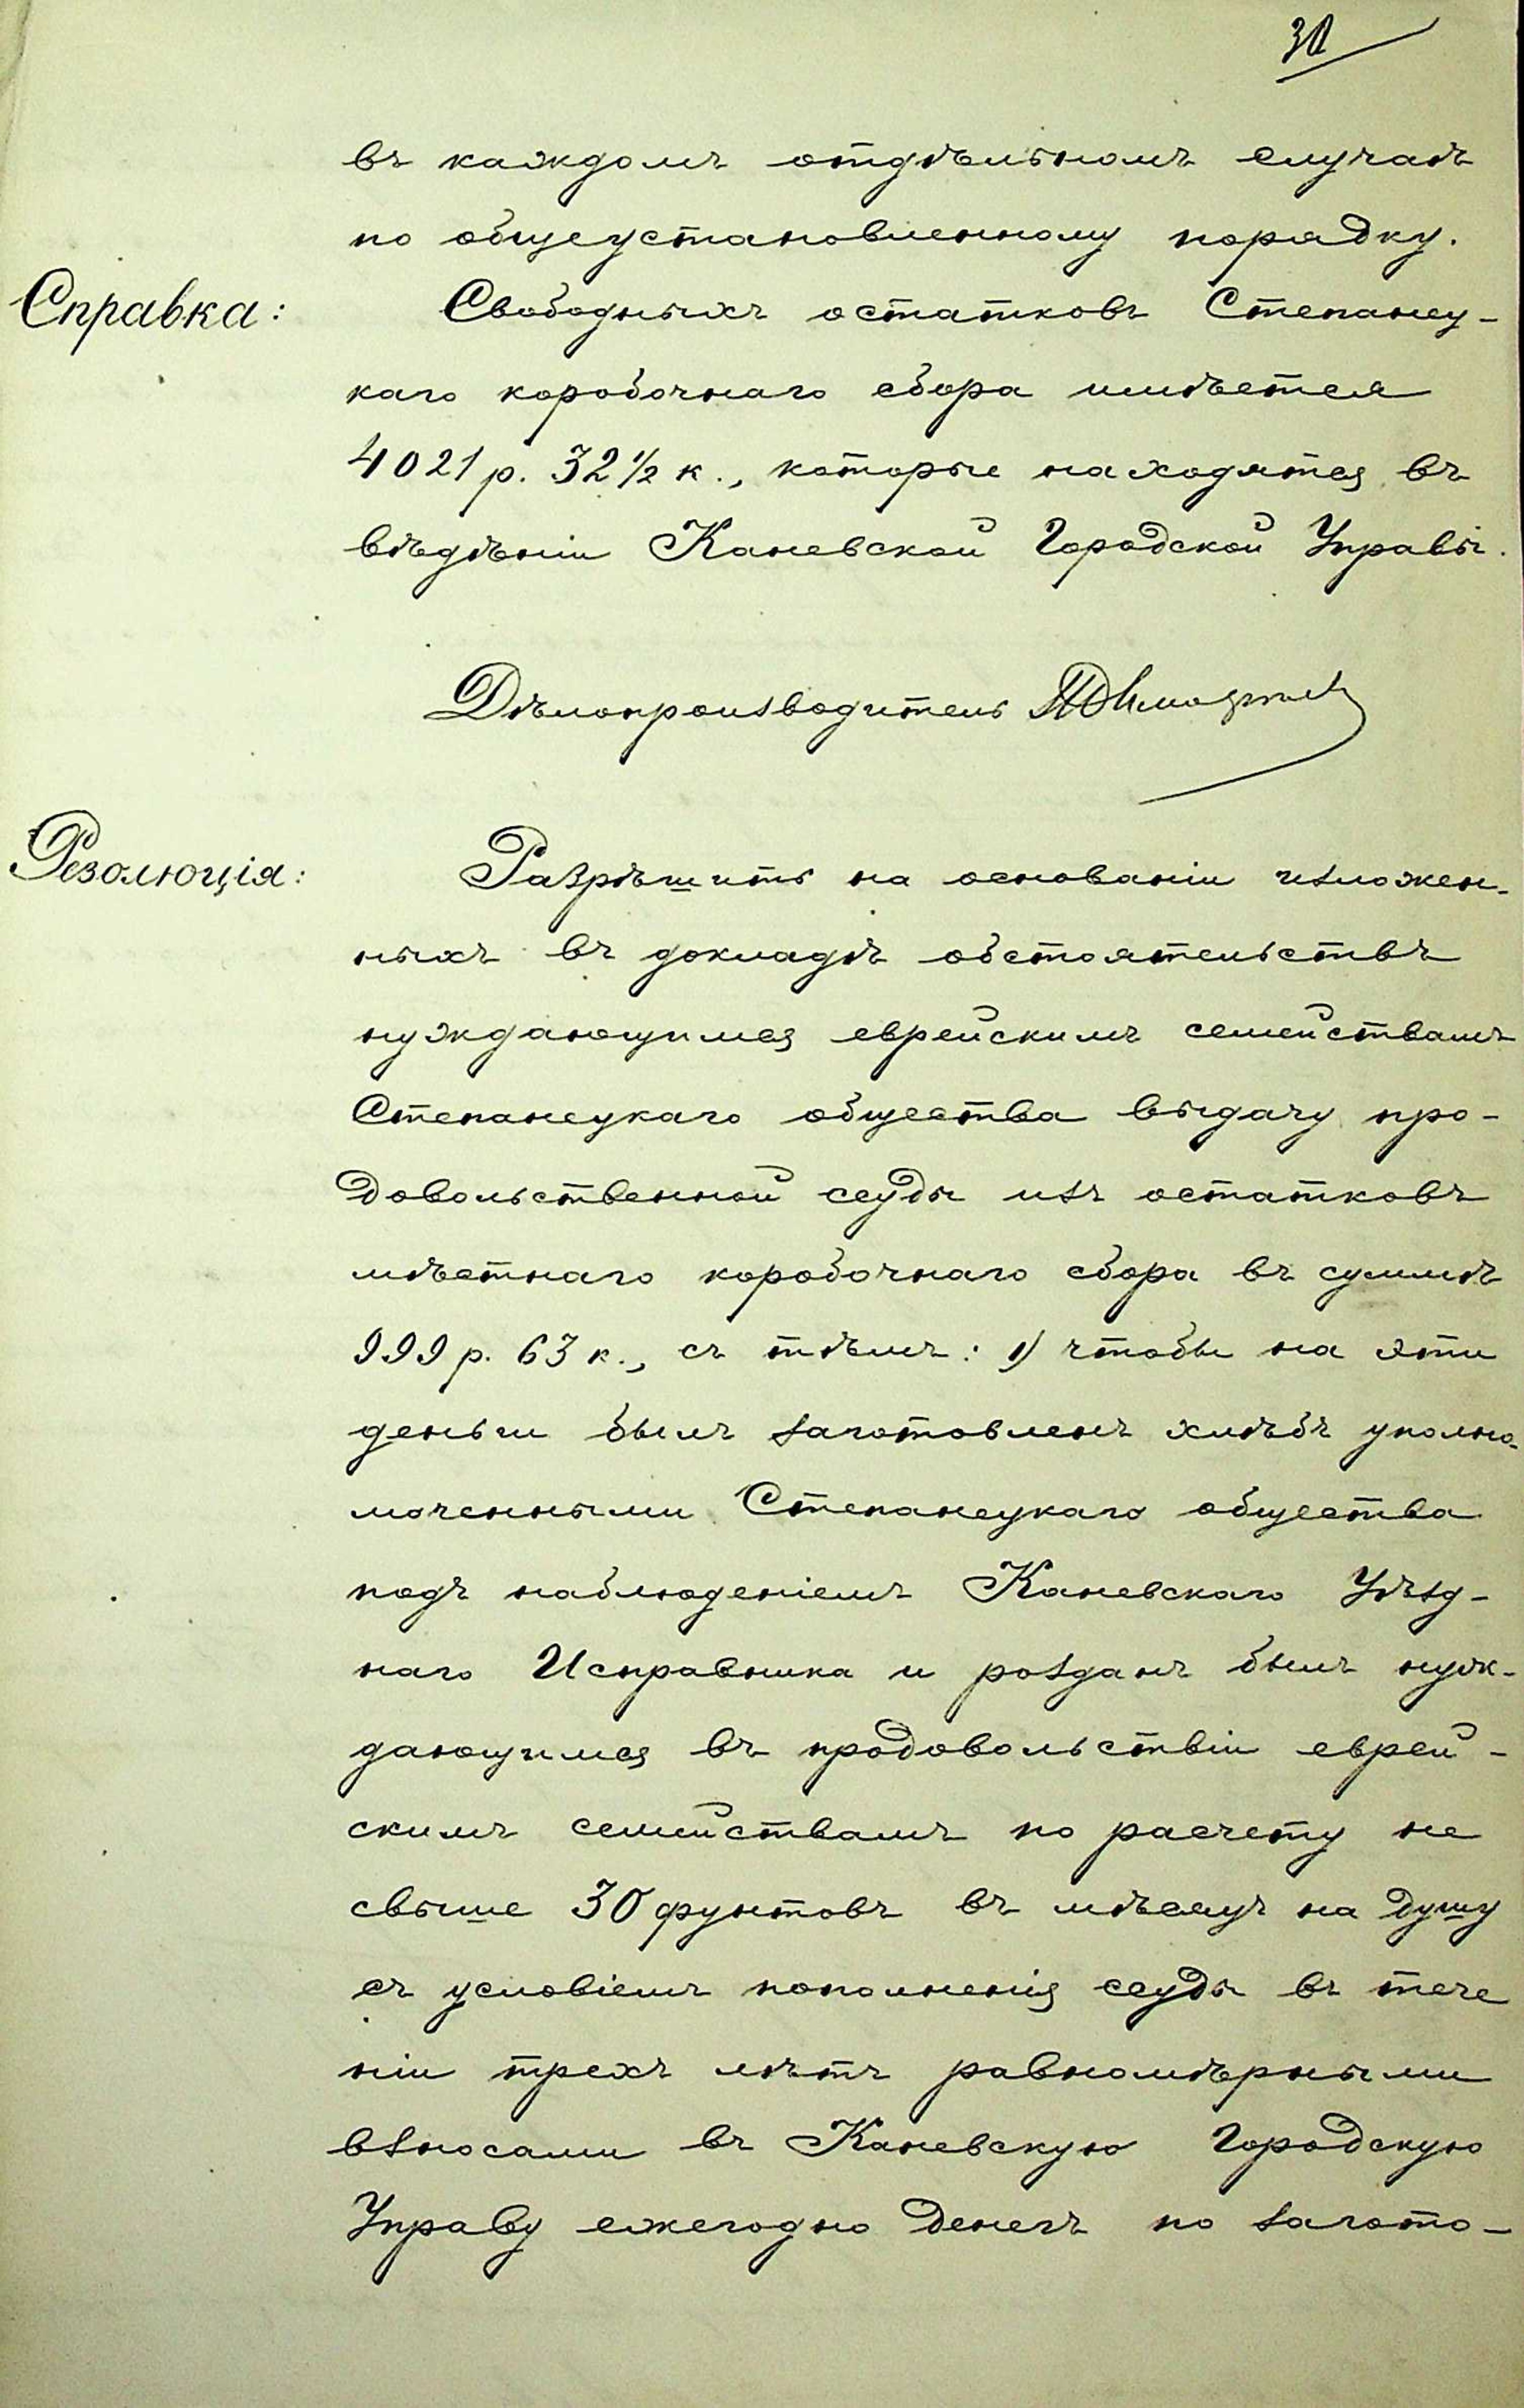 30
въ каждомъ отдѣльномъ случаѣ
по общеустановленному порядку.
Справка: Свободныхъ остатковъ Степанец-
каго коробочнаго сбора имѣется
4021 р. 32 1/2 к., которые находятся въ
вѣдѣніи Каневской Городской Управы.
Дѣлопроизводитель
Резолюція: Разрѣшить на основаніи изложен-
ныхъ въ докладѣ обстоятельствъ
нуждающимся еврейскимъ семействамъ
Степанецкаго общества выдачу про-
довольственной ссуды изъ остатковъ
мѣстнаго коробочнаго сбора въ суммѣ
999 р. 63 к., съ тѣмъ: 1) чтобы на эти
деньги былъ заготовленъ хлѣбъ уполно-
моченными Степанецкаго общества
подъ наблюденіемъ Каневскаго Уѣзд-
наго Исправника и розданъ былъ нуж-
дающимся въ продовольствіи еврей-
скимъ семействамъ по расчету не
свыше 30 фунтовъ въ мѣсяцъ на душу
съ условіемъ пополненія ссуды въ тече
ніи трехъ лѣтъ равномѣрными
взносами въ Каневскую Городскую
Управу ежегодно денегъ по загото-